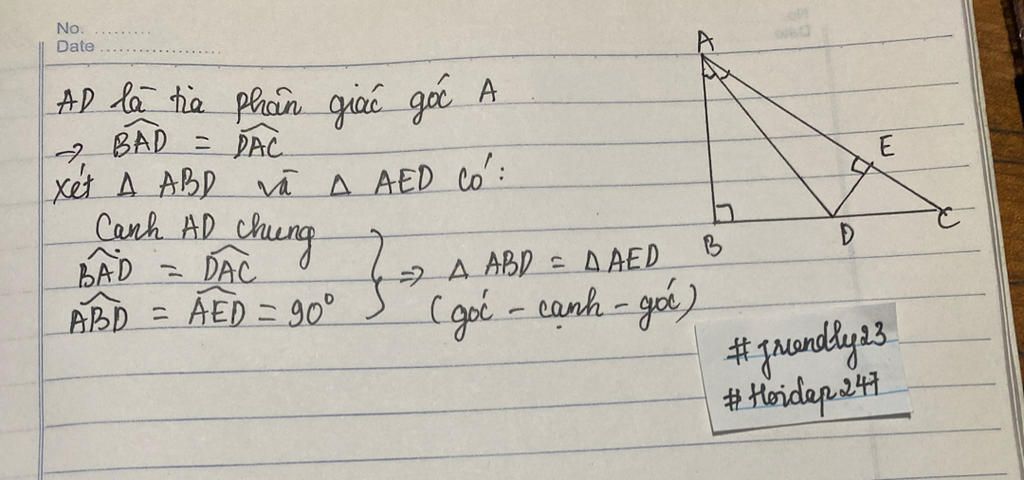 No. .........
Date ....................
AD là tia phân giác góc A
→ \widehat{BAD} = \widehat{DAC}
xét Δ ABD và Δ AED có:
Cạnh AD chung
\widehat{BAD} = \widehat{DAC}
\widehat{ABD} = \widehat{AED} = 90°
⇒ Δ ABD = Δ AED
(góc - cạnh - góc)
A
E
B
D
C
#friendly23
#Hoidap247